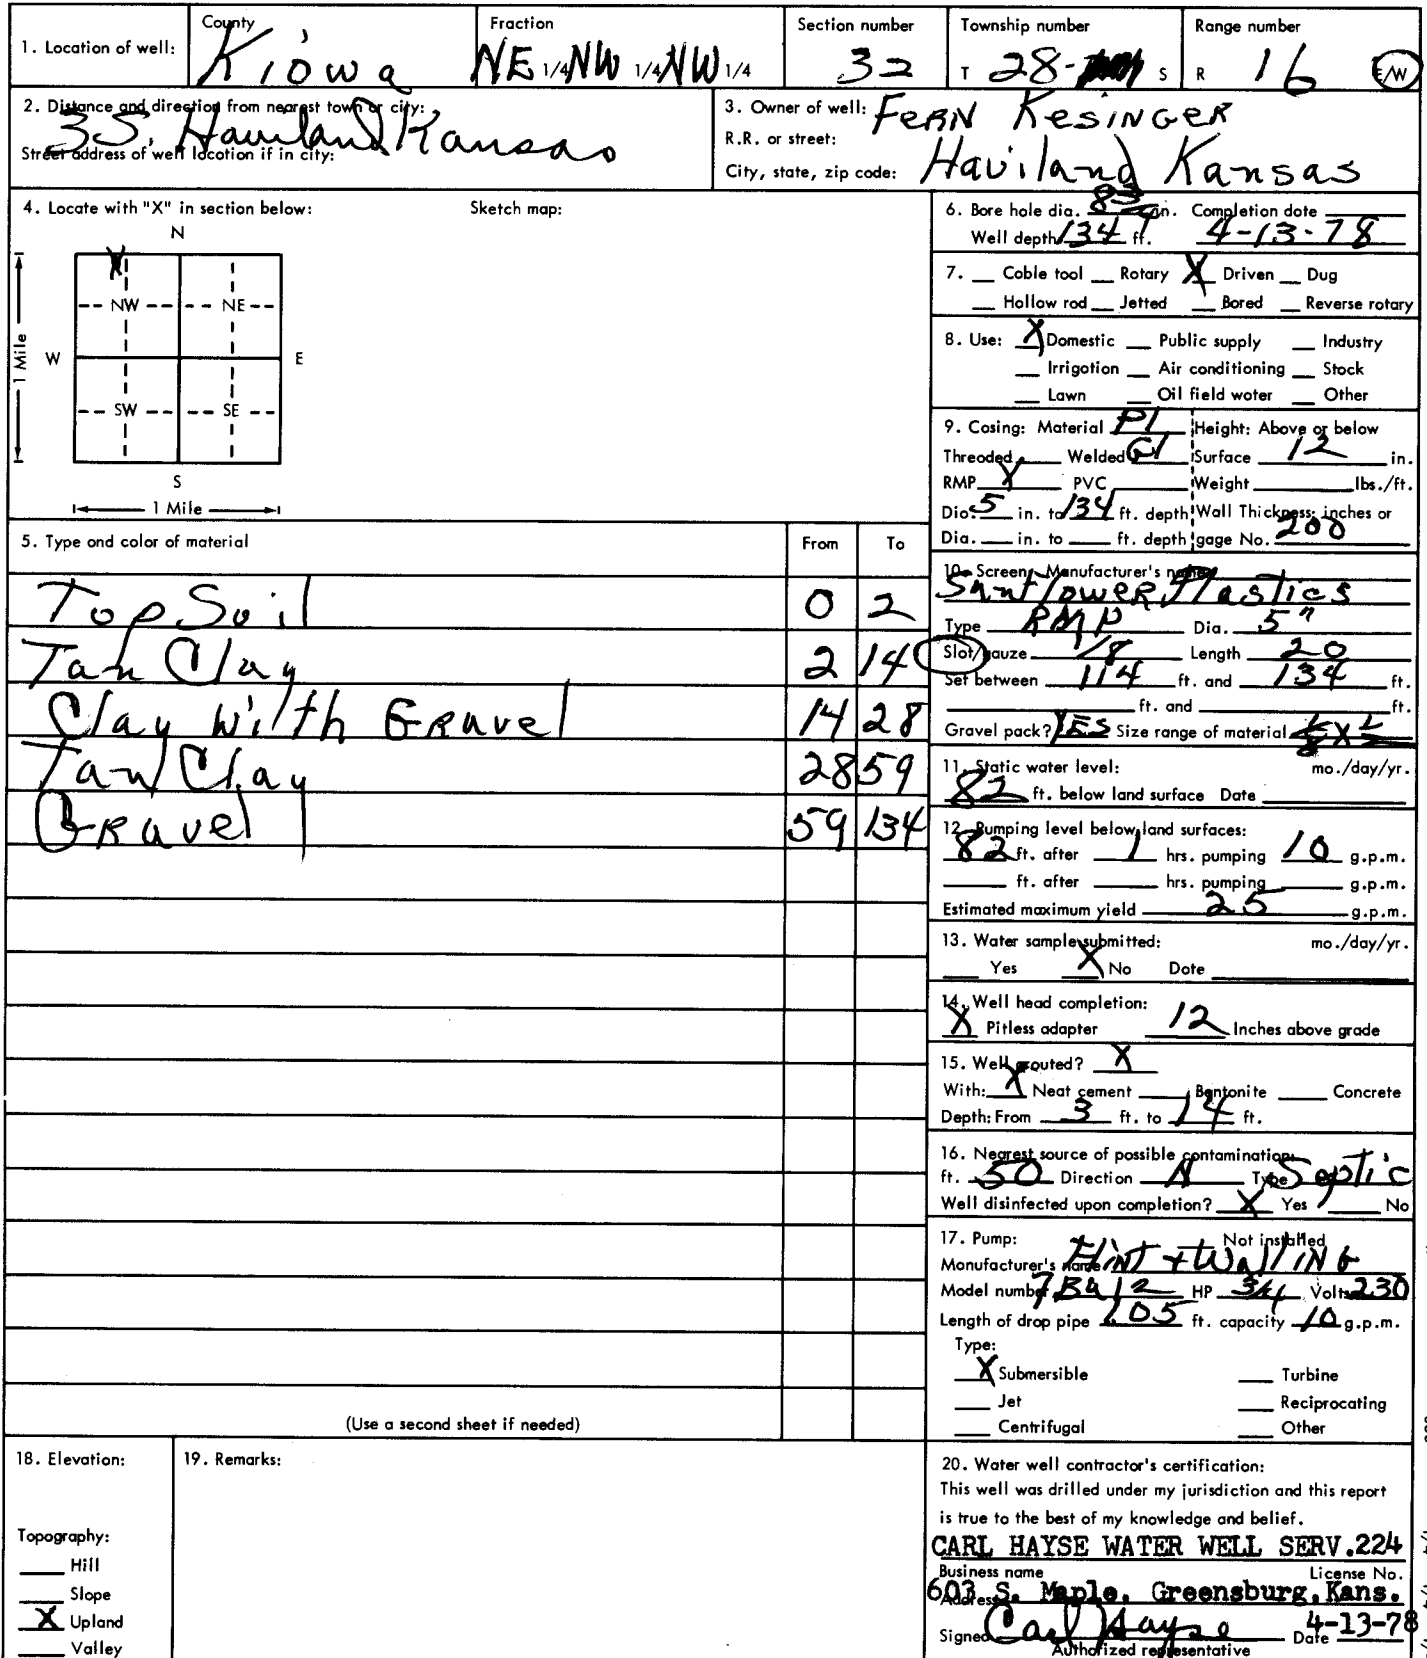 County Fraction Section number Township number Range number
1. Location of well: Kiowa NE 1/4 NW 1/4 NW 1/4 32 T 28- S R 16 E/W
2. Distance and direction from nearest town or city: 3S. Haviland Kansas
Street address of well location if in city:
3. Owner of well: FERN KESINGER
R.R. or street:
City, state, zip code: Haviland Kansas
4. Locate with "X" in section below: Sketch map:
N
X
NW NE
W E
1 Mile
SW SE
S
1 Mile
5. Type and color of material From To
Top Soil 0 2
Tan Clay 2 14
Clay With Gravel 14 28
Tan Clay 28 59
Gravel 59 134
(Use a second sheet if needed)
6. Bore hole dia. in. Completion date
Well depth 134 ft. 4-13-78
7. Cable tool Rotary X Driven Dug
Hollow rod Jetted Bored Reverse rotary
8. Use: X Domestic Public supply Industry
Irrigation Air conditioning Stock
Lawn Oil field water Other
9. Casing: Material Pl Height: Above or below
Threaded Welded Gl Surface 12 in.
RMP X PVC Weight lbs./ft.
Dia. 5 in. to 134 ft. depth Wall Thickness: inches or
Dia. in. to ft. depth gage No. 200
10. Screen: Manufacturer's name
Sunflower Plastics
Type RMP Dia. 5"
Slot/gauze 1/8 Length 20
Set between 114 ft. and 134 ft.
ft. and ft.
Gravel pack? YES Size range of material X
11. Static water level: mo./day/yr.
82 ft. below land surface Date
12. Pumping level below land surfaces:
82 ft. after 1 hrs. pumping 10 g.p.m.
ft. after hrs. pumping g.p.m.
Estimated maximum yield 25 g.p.m.
13. Water sample submitted: mo./day/yr.
Yes X No Date
14. Well head completion:
X Pitless adapter 12 Inches above grade
15. Well grouted? X
With: X Neat cement Bentonite Concrete
Depth: From 3 ft. to 14 ft.
16. Nearest source of possible contamination:
ft. 50 Direction N Type Septic
Well disinfected upon completion? X Yes No
17. Pump: Not installed
Manufacturer's name Flint + Walling
Model number HP 3/4 Volts 230
Length of drop pipe 105 ft. capacity 10 g.p.m.
Type:
X Submersible Turbine
Jet Reciprocating
Centrifugal Other
18. Elevation:
Topography:
Hill
Slope
X Upland
Valley
19. Remarks:
20. Water well contractor's certification:
This well was drilled under my jurisdiction and this report
is true to the best of my knowledge and belief.
CARL HAYSE WATER WELL SERV. 224
Business name License No.
603 S. Maple, Greensburg, Kans.
Address
Signed Carl Hayse Date 4-13-78
Authorized representative